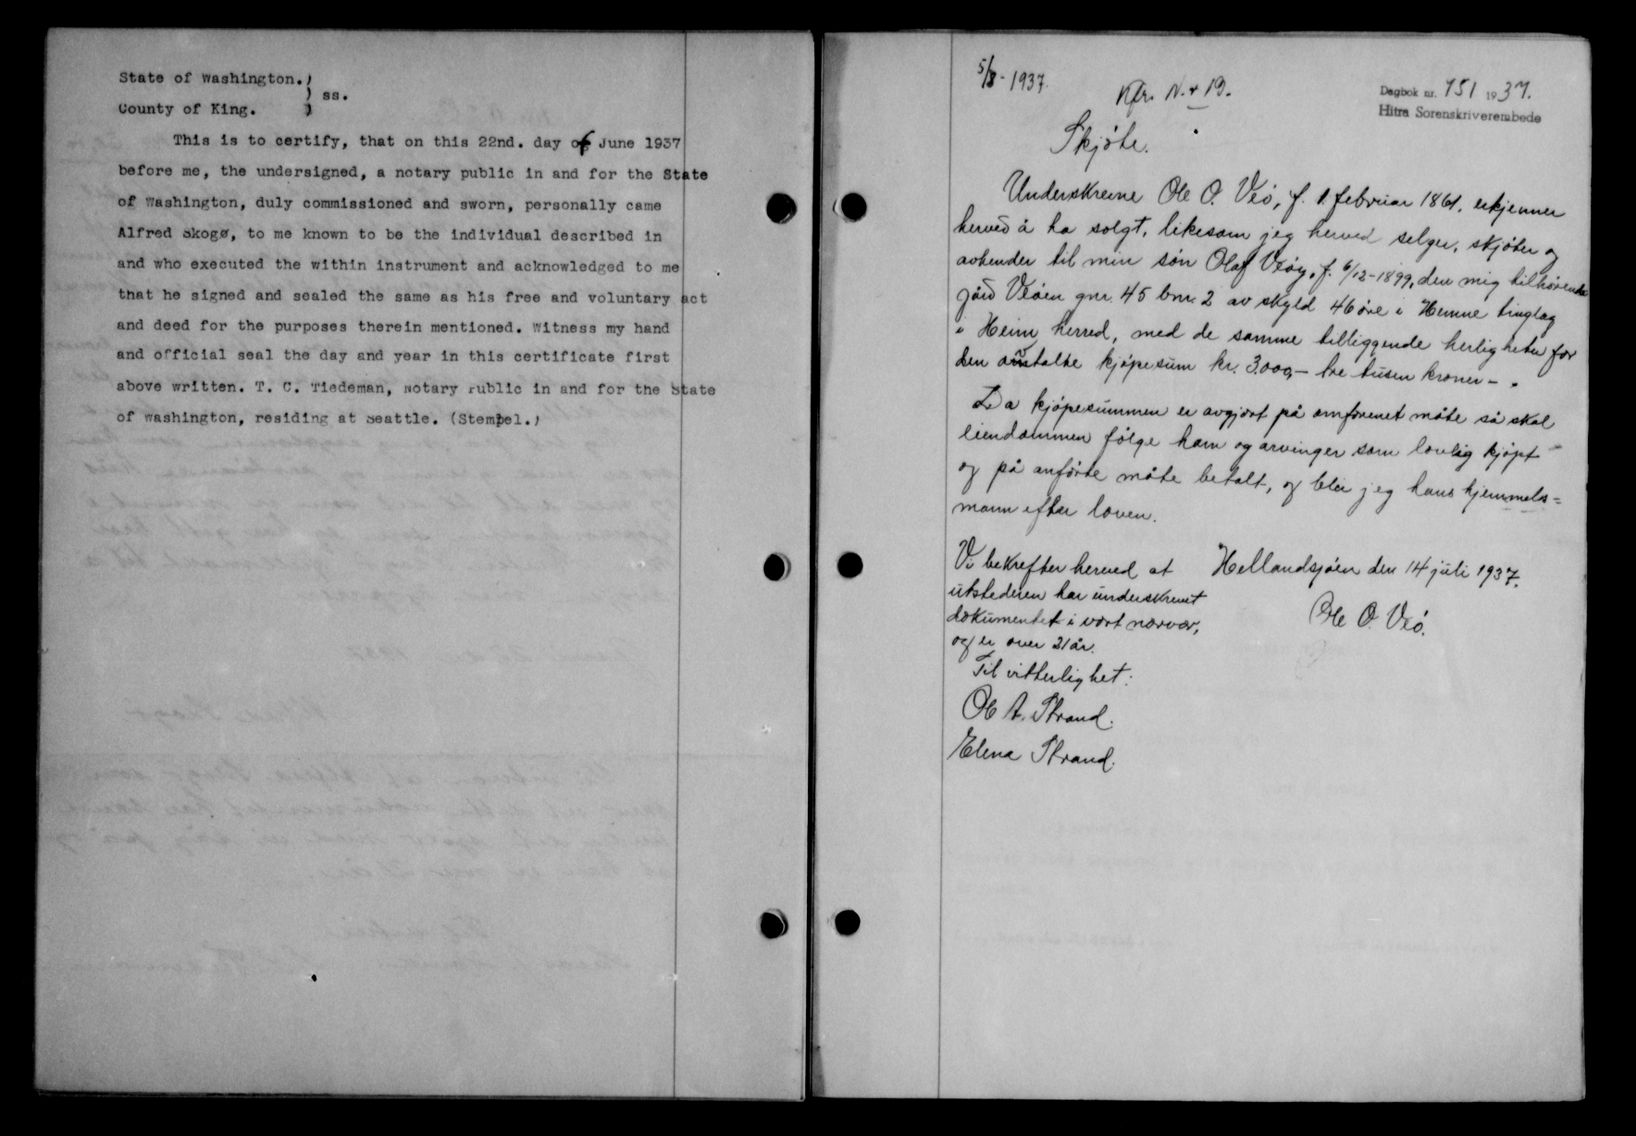 State of Washington.)
) ss.
County of King. )
This is to certify, that on this 22nd. day of June 1937
before me, the undersigned, a notary public in and for the State
of Washington, duly commissioned and sworn, personally came
Alfred Skogø, to me known to be the individual described in
and who executed the within instrument and acknowledged to me
that he signed and sealed the same as his free and voluntary act
and deed for the purposes therein mentioned. Witness my hand
and official seal the day and year in this certificate first
above written. T. C. Tiedeman, Notary Public in and for the State
of Washington, residing at Seattle. (Stempel.)
5/8-1937.
Dagbok nr. 751 1937.
Hitra Sorenskriverembede
Skjøte.
Underskrevne Ole O. Veø, f. 1. februar 1861, erkjenner
herved å ha solgt, likesom jeg herved selger, skjøter og
avhender til min søn Olaf Veøy, f. 6/12-1899, den mig tilhørende
jord Veøen gnr. 45 bnr. 2 av skyld 46 øre i Hemne tinglag
i Heim herred, med de samme tilliggende herligheter for
den avtalte kjøpesum kr. 3.000,- tre tusen kroner - .
Da kjøpesummen er avgjort på omforenet måte så skal
eiendommen følge ham og arvinger som lovlig kjøpt
og på anførte måte betalt, og blir jeg hans hjemmels=
mann efter loven.
Hellandsjøen den 14 juli 1937.
Ole O. Veø.
Vi bekrefter herved at
utstederen har underskrevet
dokumentet i vort nærvær,
og er over 21 år.
Til vitterlighet:
Ole A. Strand.
Elena Strand.